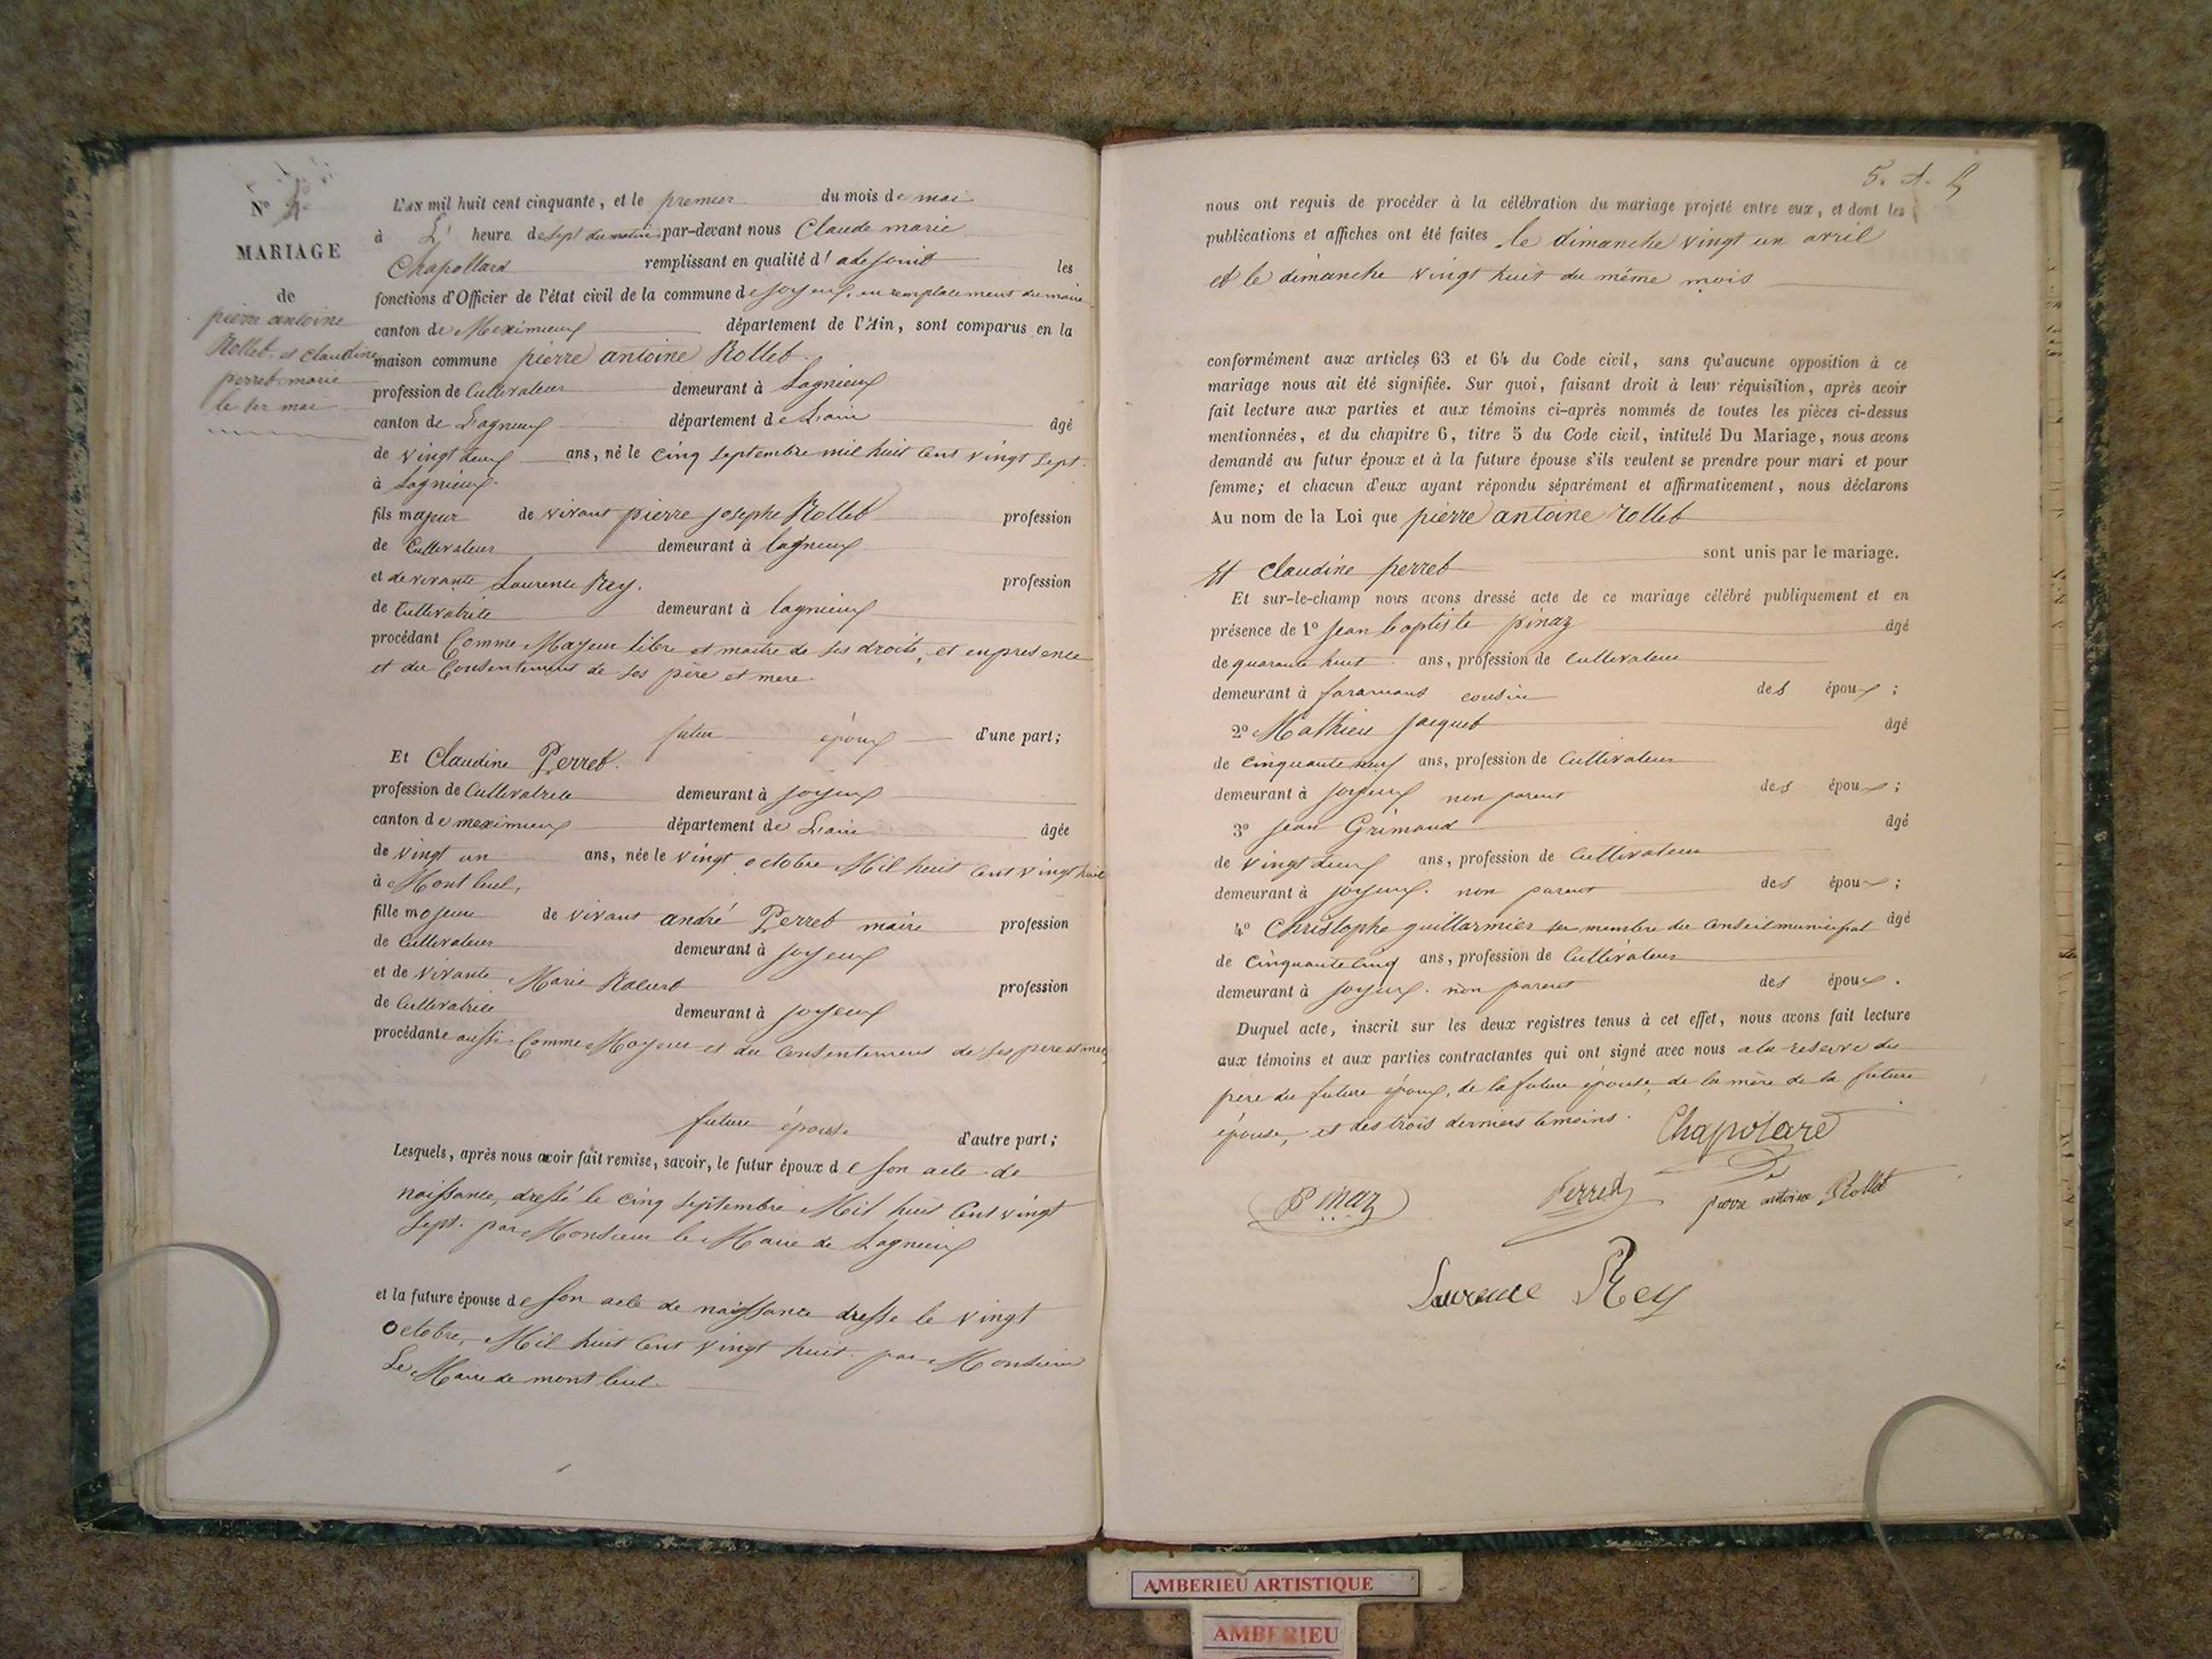 Nº
MARIAGE
de
pierre antoine
Rollet et Claudine
perret marie
le 1er mai
L'AN mil huit cent cinquante, et le premier du mois de mai
à L' heure de sept du matin par-devant nous Claude marie
Chapollard remplissant en qualité d'adejoint les
fonctions d'Officier de l'état civil de la commune de joyeux, en remplacement du maire
canton de Meximieux département de l'Ain, sont comparus en la
maison commune pierre antoine Rollet.
profession de Cultivateur demeurant à Lagnieux
canton de Lagnieux département de L'ain âgé
de vingt deux ans, né le cinq septembre mil huit cent vingt sept.
à Lagnieux.
fils majeur de vivant pierre josephe Rollet profession
de Cultivateur demeurant à lagnieux
et de vivante Laurence Rey. profession
de Cultivatrice demeurant à lagnieux
procédant Comme Majeur libre et maitre de ses droits, et en presence
et du Consentement de ses père et mere.
futur époux d'une part;
Et Claudine Perret.
profession de Cultivatrice demeurant à joyeux
canton de meximieux département de L'ain âgée
de vingt un ans, née le vingt octobre Mil huit cent vingt huit
à Montluel,
fille majeure de vivant andré Perret maire profession
de Cultivateur demeurant à joyeux
et de vivante Marie profession
de Cultivatrice demeurant à joyeux
procédante aussi Comme Majeur et du consentement de ses pere et mere
future épouse d'autre part;
Lesquels, après nous avoir fait remise, savoir, le futur époux de son acte de
naissance, dressé le cinq septembre Mil huit Cent vingt
sept. par Monsieur le Maire de Lagnieux
et la future épouse de son acte de naissance dresse le vingt
octobre, Mil huit Cent vingt huit par Monsieur
Le Maire de montluel.
nous ont requis de procéder à la célébration du mariage projeté entre eux, et dont les
publications et affiches ont été faites le dimanche vingt un avril
et le dimanche vingt huit du même mois
conformément aux articles 63 et 64 du Code civil, sans qu'aucune opposition à ce
mariage nous ait été signifiée. Sur quoi, faisant droit à leur réquisition, après avoir
fait lecture aux parties et aux témoins ci-après nommés de toutes les pièces ci-dessus
mentionnées, et du chapitre 6, titre 5 du Code civil, intitulé Du Mariage, nous avons
demandé au futur époux et à la future épouse s'ils veulent se prendre pour mari et pour
femme; et chacun d'eux ayant répondu séparément et affirmativement, nous déclarons
Au nom de la Loi que pierre antoine rollet
sont unis par le mariage.
Et Claudine perret
Et sur-le-champ nous avons dressé acte de ce mariage célébré publiquement et en
présence de 1º jean baptiste pinaz âgé
de quarante huit ans, profession de Cultivateur
demeurant à faramans cousin des époux;
2º Mathieu jacquet âgé
de cinquante neuf ans, profession de Cultivateur
demeurant à joyeux non parent des époux;
3º jean Grimaud âgé
de vingt deux ans, profession de Cultivateur
demeurant à joyeux. non parent des époux;
4º Christophe guillarmier membre du Conseil municipal âgé
de Cinquante cinq ans, profession de Cultivateur
demeurant à joyeux. non parent des époux.
Duquel acte, inscrit sur les deux registres tenus à cet effet, nous avons fait lecture
aux témoins et aux parties contractantes qui ont signé avec nous a la reserve du
père du future époux, de la future épouse, de la mère de la future
épouse, et des trois derniers temoins.
Chapolard
Pinaz
Perret
pierre antoine Rollet
Laurence Rey
AMBERIEU ARTISTIQUE
AMBERIEU